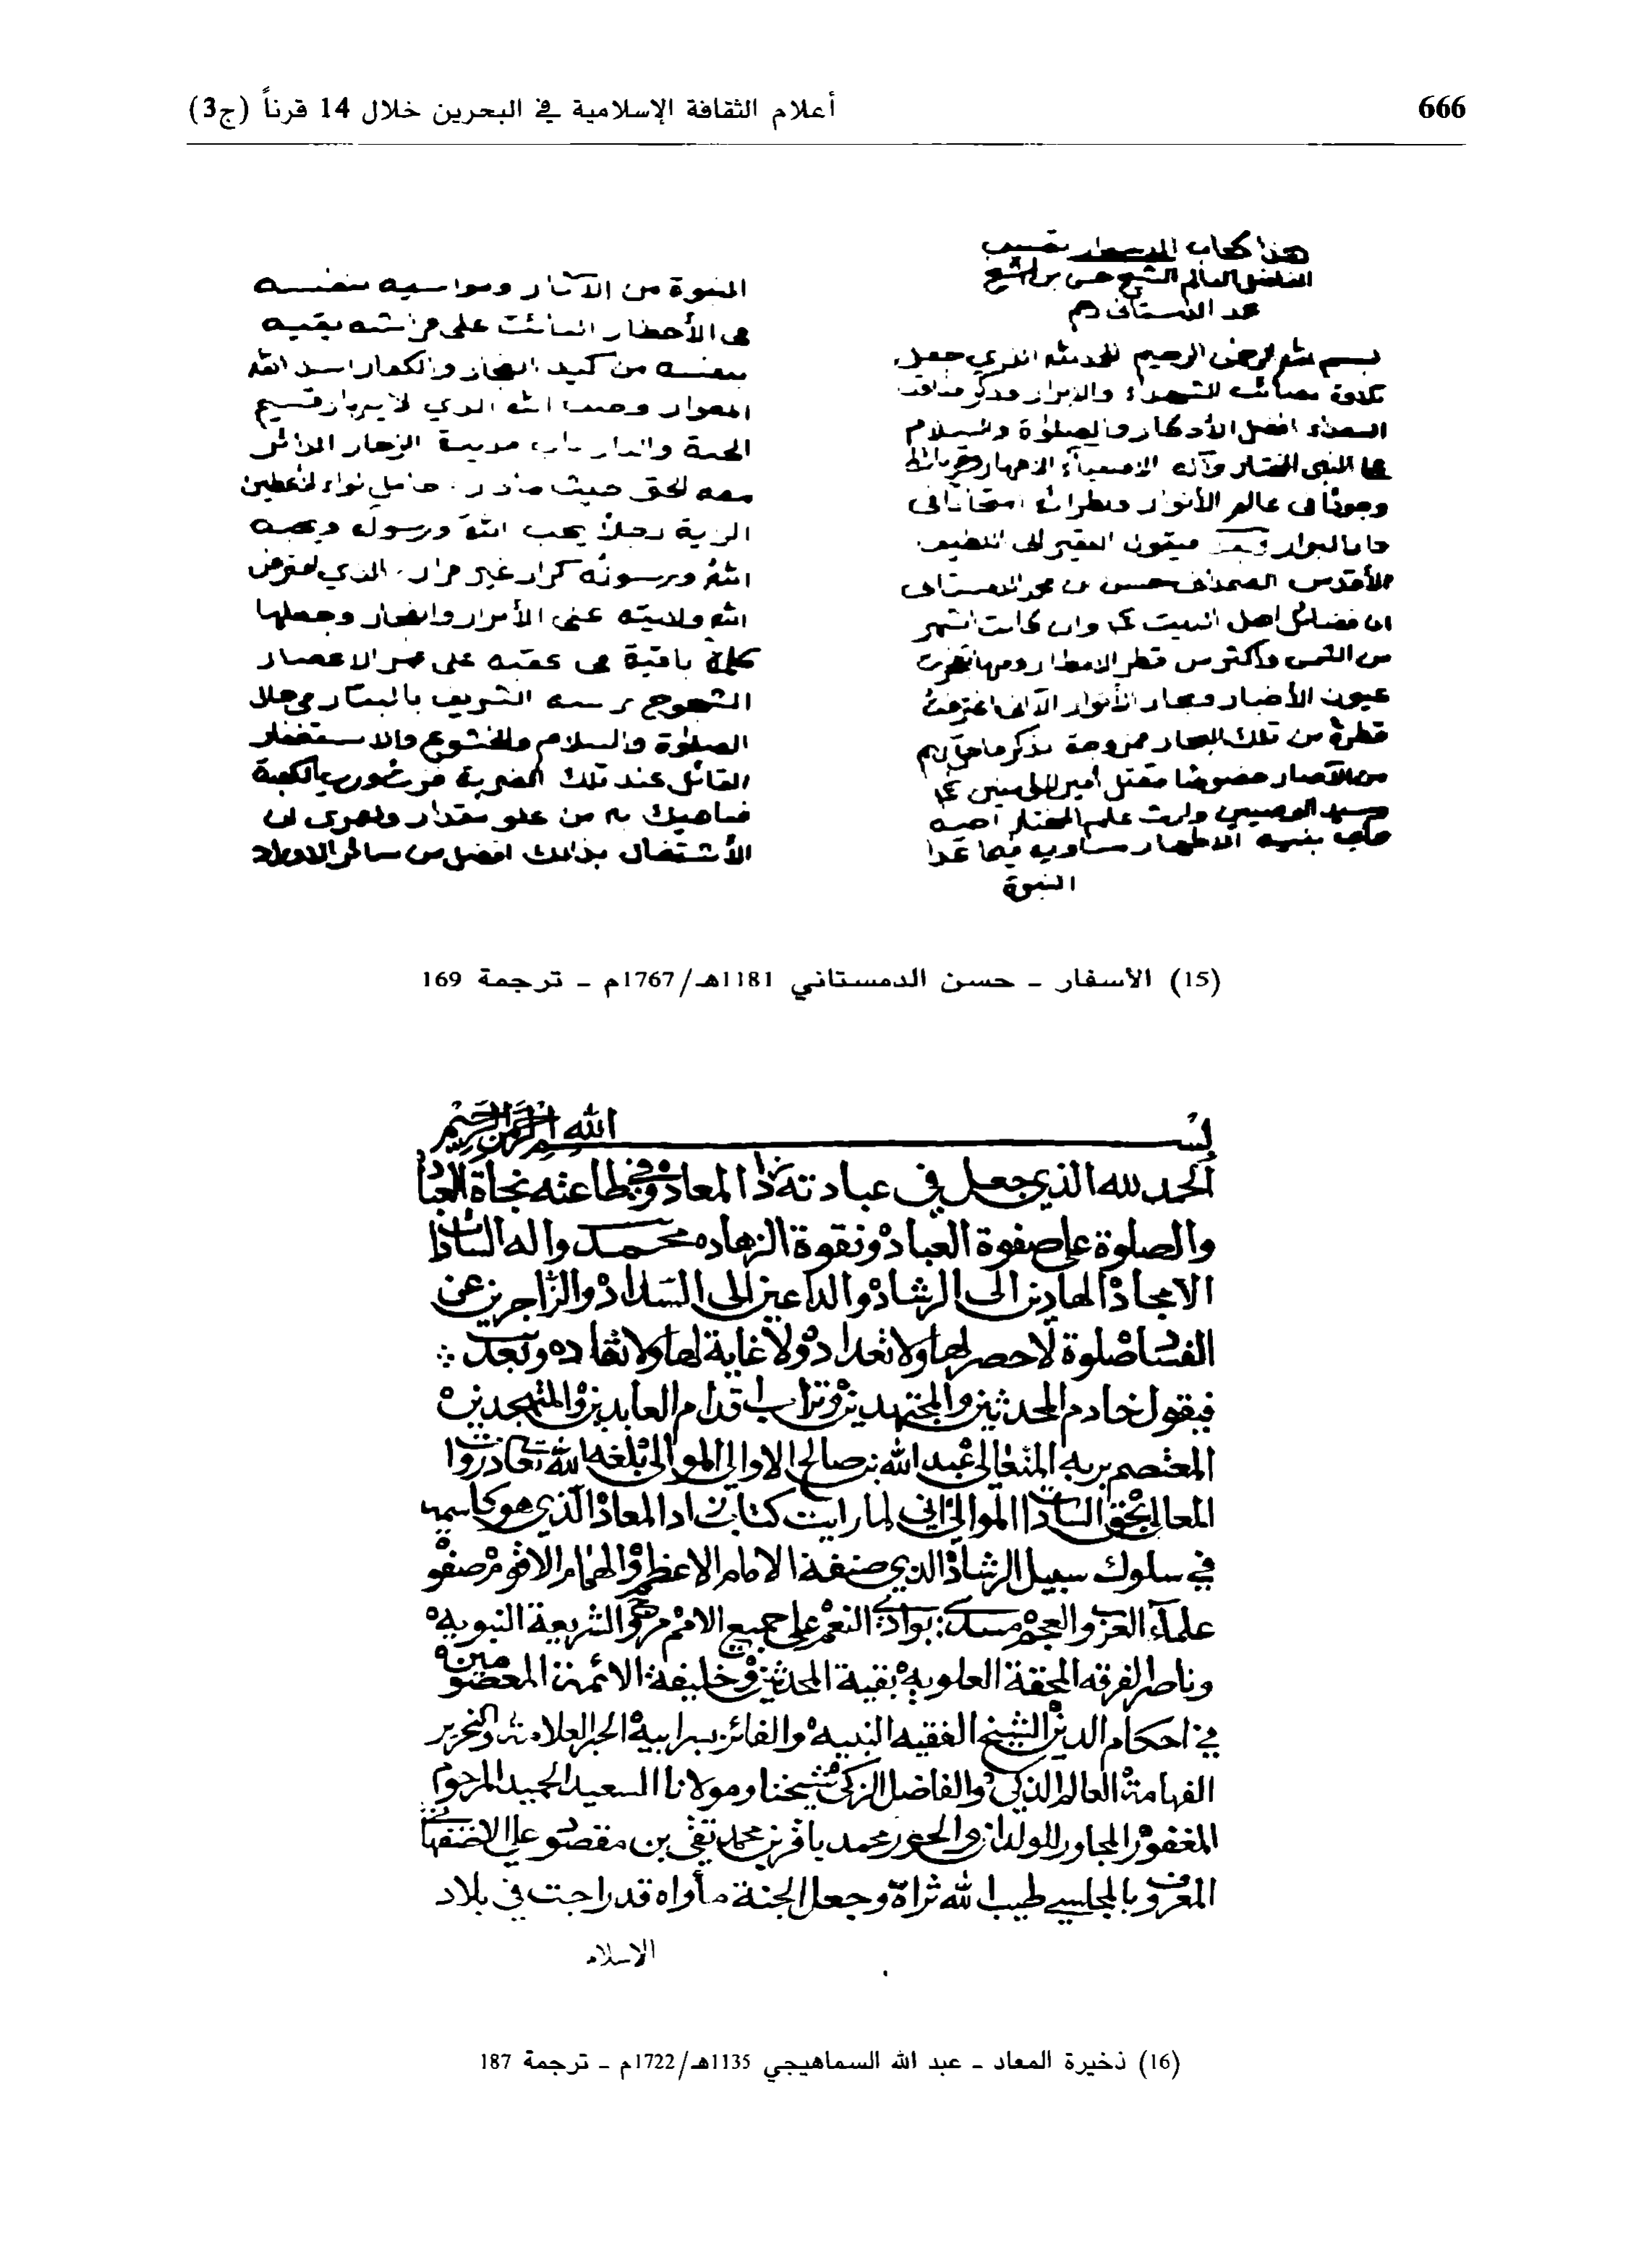 666
أعلام الثقافة الإسلامية في البحرين خلال 14 قرناً (ج3)
هذا كتاب
الفاضل العالم الشيخ حسن بن الشيخ
محمد الدمستاني
بسم الله الرحمن الرحيم الحمد لله الذي جعل
تلاوة مصائب الشهداء والابرار وذكر مناقب
السعداء افضل الأذكار والصلوة والسلام
على النبي المختار وآله الاصفياء الاطهار
وجودنا في عالم الأنوار
فيقول الفقير الى اللطيف
الأقدس الصمداني حسن بن محمد الدمستاني
ان فضائل اهل البيت وان كانت اشهر
من الشمس واكثر من قطر الامطار ومنها تفجرت
عيون الأخبار وبحار الأنوار الا اني اغترفت
قطرة من تلك البحار ممزوجة بذكر ما حل بهم
من الآصار خصوصا مقتل أمير المؤمنين
سيد الوصيين وارث علم المختار اخيه
بنيه الاطهار مساويه فيما عدا
النبوة
النبوة من الآثار ومواسيه بنفسه
في الأخطار البائت على فراشه يقيه
بنفسه من كيد الفجار والكفار اسد الله
المغوار وحبيب الله الذي لا يبارز قسيم
الجنة والنار باب مدينة
معه الحق حيث ما دار حامل لواء
الراية رجلا يحب الله ورسوله ويحبه
الله ورسوله كرار غير فرار الذي افترض
الله ولايته على الأبرار والفجار وجعلها
كلمة باقية في عقبه على ممر الاعصار
المشجوج رأسه الشريف بالبتار في خلال
الصلوة والسلام والخشوع والاستغفار
القائل عند تلك الضربة فزت ورب الكعبة
فناهيك به من علو مقدار ولعمري ان
الأشتغال بذلك افضل من سائر الاوراد
(15) الأسفار - حسن الدمستاني 1181هـ/1767م - ترجمة 169
بسم الله الرحمن الرحيم
الحمد لله الذي جعل في عبادته زاد المعاد وفي طاعته نجاة العباد
والصلوة على صفوة العباد ونقوة الزهاد محمد واله السادات
الامجاد الهادين الى الرشاد والداعين الى السداد والزاجرين عن
الفساد صلوة لا حصر لها ولا تعداد ولا غاية لها ولا نفاد وبعد
فيقول خادم المحدثين والمجتهدين وتراب اقدام العابدين والمتهجدين
المعتصم بربه المتعالي عبد الله بن صالح الاوالي الموالي بلغه الله تعالى ذروة
المعالي بحق السادات الموالي اني لما رايت كتاب زاد المعاد الذي هو كاسمه
في سلوك سبيل الرشاد الذي صنفه الامام الاعظم والهمام الافخم صفوة
علماء العرب والعجم النعم على جميع الامم مروج الشريعة النبوية
وناصر الفرقه المحقة العلوية بقية المحدثين وخليفة الائمة المعصومين
في احكام الدين الشيخ الفقيه النبيه والفائز بسر ابيه الحبر العلامة والنحرير
الفهامة العالم الذكي والفاضل الزكي شيخنا ومولانا السعيد الحميد المرحوم
المغفور المجاور للولدان والحور محمد باقر بن محمد تقي بن مقصود علي الاصفهاني
المعروف بالمجلسي طيب الله ثراه وجعل الجنة مأواه قد راجت في بلاد
الاسلام
(16) ذخيرة المعاد - عبد الله السماهيجي 1135هـ/1722م - ترجمة 187